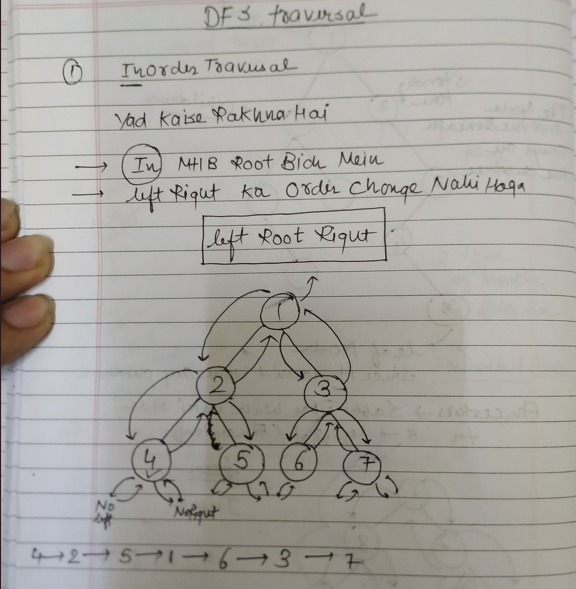 DFS traversal
① Inorder Traversal
Yad Kaise Rakhna Hai
→ In Mtlb Root Bich Mein
→ left Right Ka Order Change Nahi Hoga
left Root Right
1
2
3
4
5
6
7
No left
No Right
4→2→5→1→6→3→7